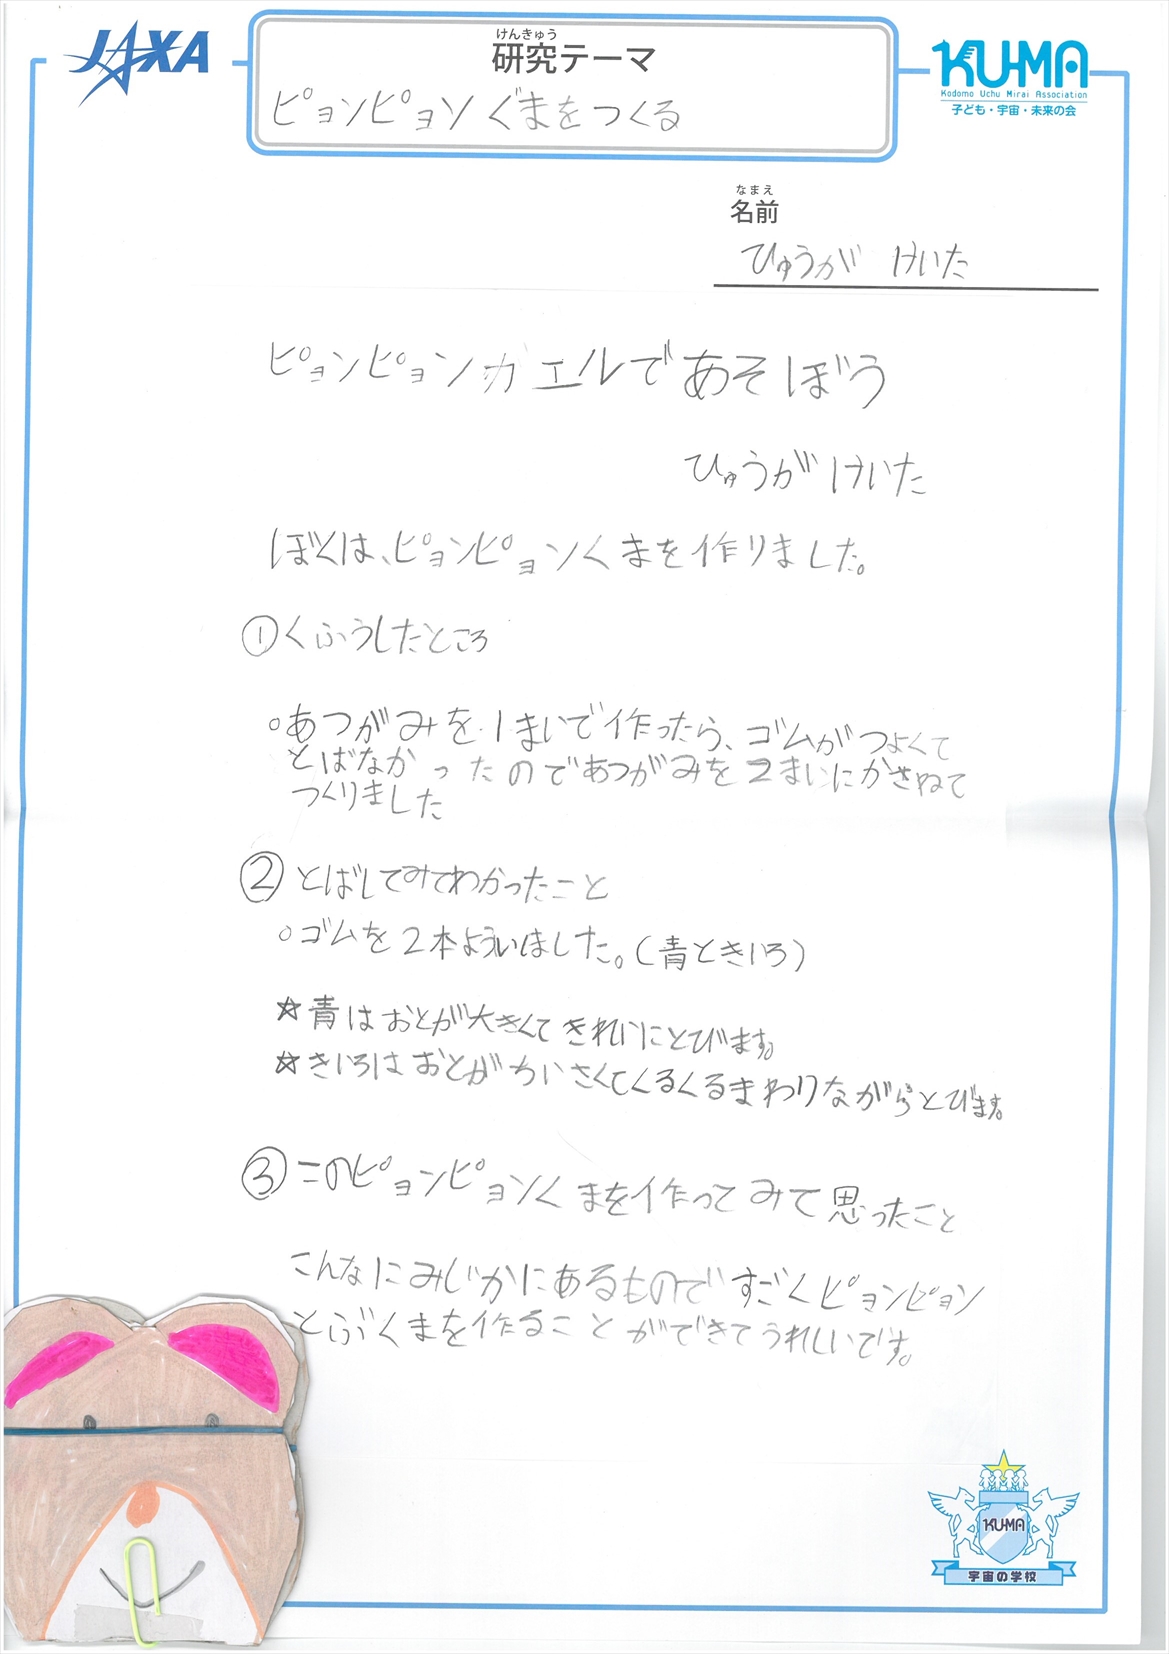 JAXA
けんきゅう
研究テーマ
ピョンピョンぐまをつくる
KU-MA
Kodomo Uchu Mirai Association
子ども・宇宙・未来の会
なまえ
名前
ひゅうが けいた
ピョンピョンガエルであそぼう
ひゅうがけいた
ぼくは、ピョンピョンくまを作りました。
①くふうしたところ
○あつがみを1まいで作ったら、ゴムがつよくて
とばなかったのであつがみを2まいにかさねて
つくりました
②とばしてみてわかったこと
○ゴムを2本よういしました。(青ときいろ)
☆青はおとが大きくてきれいにとびます。
☆きいろはおとがちいさくてくるくるまわりながらとびます。
③このピョンピョンくまを作ってみて思ったこと
こんなにみじかにあるものですごくピョンピョン
とぶくまを作ることができてうれしいです。
KU-MA
宇宙の学校